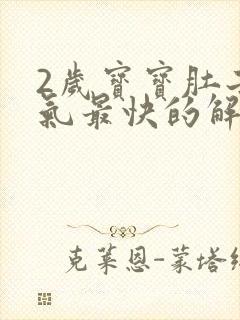 2歲寶寶肚
氣最快的解
克萊恩-蒙塔